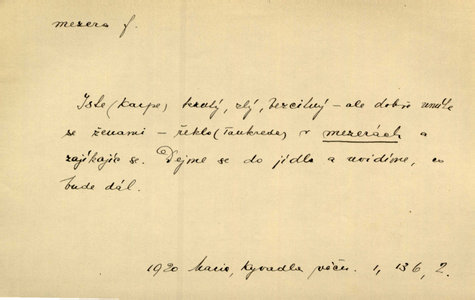 mezera f.
Jste (Karpe) krutý, zlý, bezcitný – ale dobře umíte
se ženami – řekla (Tankreda) v mezerách a
zajíkajíc se. Dejme se do jídla a uvidíme, co
bude dál.
1920 Maria, Kyvadla věčn. 1, 136, 2.